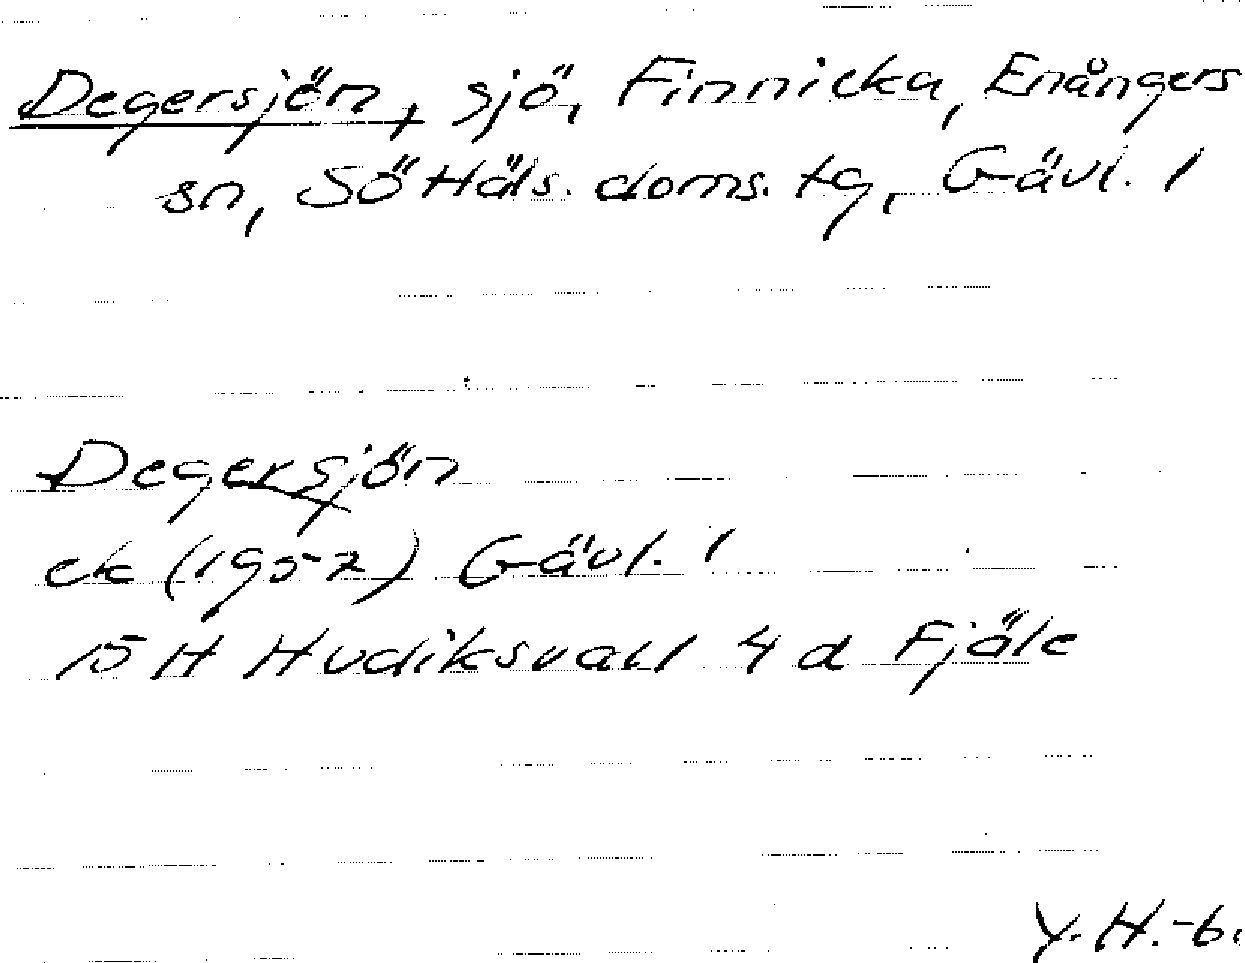 Degersjön, sjö, Finnicka, Enångers
sn, SöHäls. doms. tg, Gävl. l
Degersjön
ek (1957) Gävl. l
15 H Hudiksvall 4 d Fjäle
Y. H.-b.